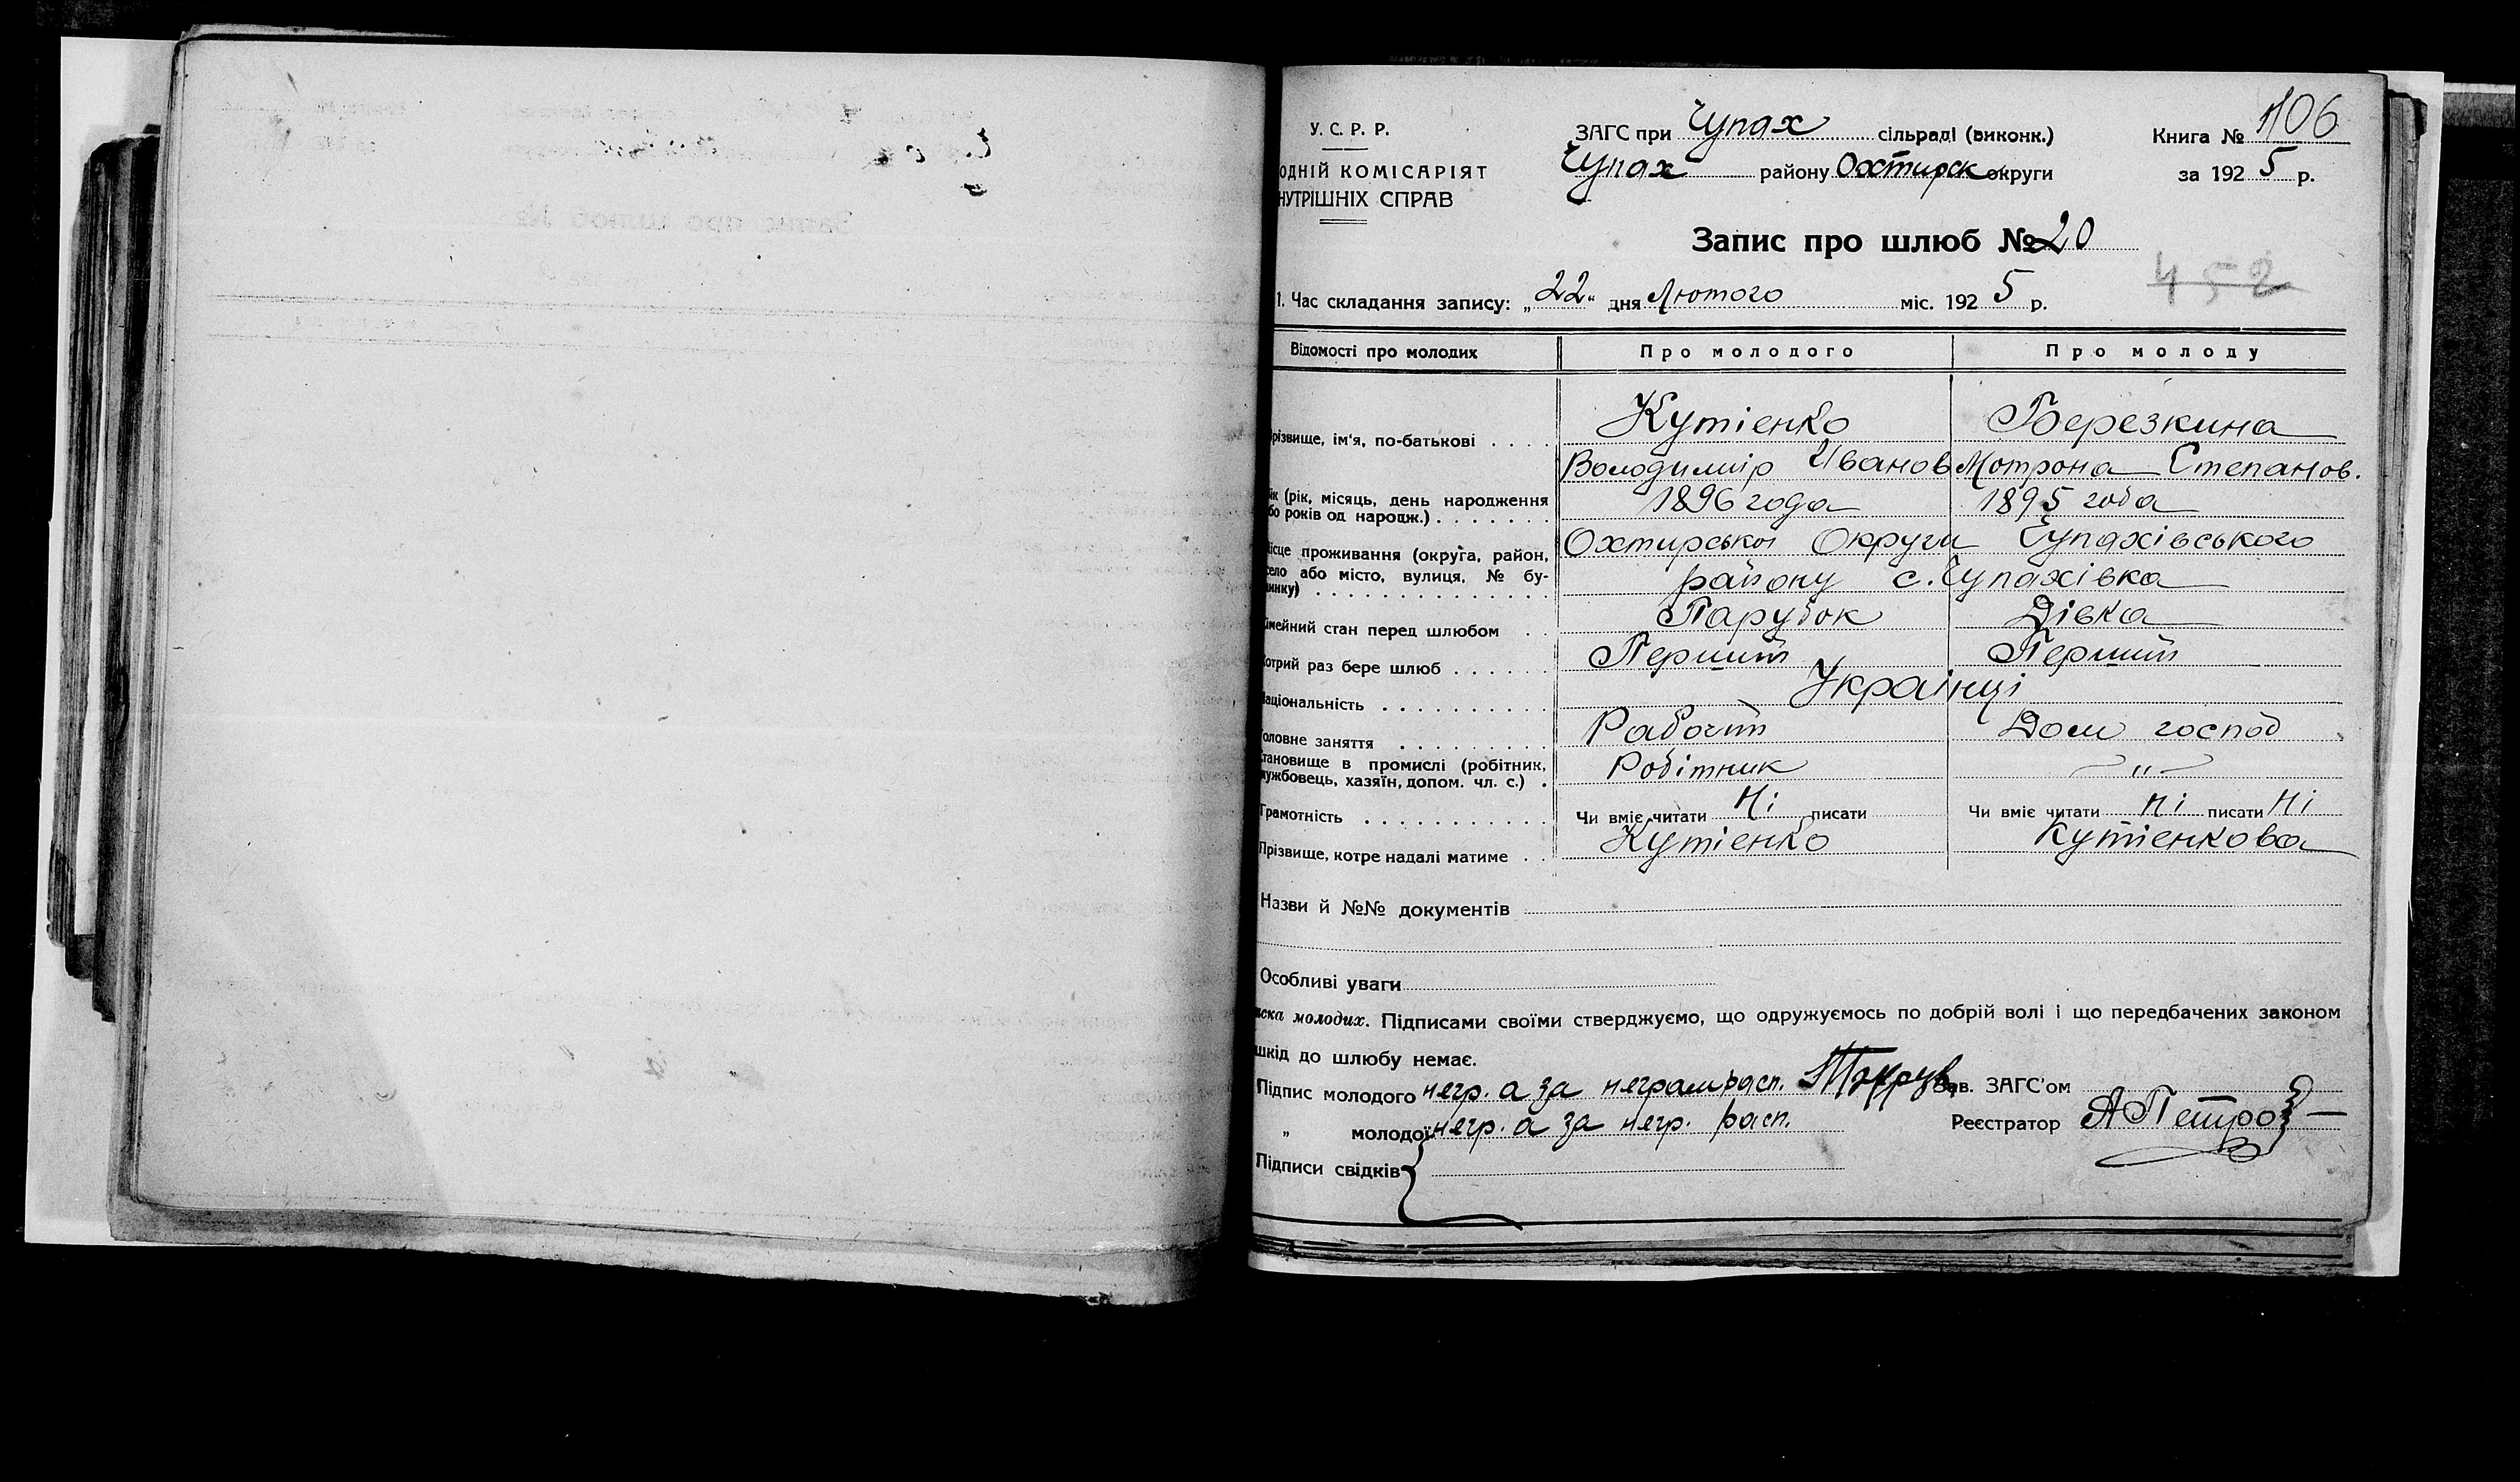 У. С. Р. Р.
ОДНІЙ КОМІСАРІЯТ
НУТРІШНІХ СПРАВ
ЗАГС при Чупах сільраді (виконк.)
Чупах району Охтирск округи
Книга № 106
за 1925 р.
Запис про шлюб № 20
452
1. Час складання запису: „22“ дня Лютого міс. 1925 р.
Відомості про молодих Про молодого Про молоду
різвище, ім'я, по-батькові . . . . Кутіенко Березкина
Володимир Иванов Мотрона Степанов.
ік (рік, місяць, день народження
бо років од народж.) . . . . . . . 1896 года 1895 года
ісце проживання (округа, район, Охтирськоі Округи Чупахівського
село або місто, вулиця, № бу-
динку) . . . . . . . . . . . . . . району с. Чупахівка
імейний стан перед шлюбом . . Парубок Дівка
отрий раз бере шлюб . . . . . . Перший Перший
аціональність . . . . . . . . . . Украінці
оловне заняття . . . . . . . . . Рабочий Дом господ
тановище в промислі (робітник,
ужбовець, хазяїн, допом. чл. с.) . Робітник — „ —
Грамотність . . . . . . . . . . . Чи вміє читати Ні писати Чи вміє читати Ні писати Ні
Прізвище, котре надалі матиме . . Кутіенко Кутіенкова
Назви й №№ документів
Особливі уваги
иска молодих. Підписами своїми стверджуємо, що одружуємось по добрій волі і що передбачених законом
шкід до шлюбу немає.
Підпис молодого негр. а за неграм расп. Зав. ЗАГС'ом
„ молодої негр. а за негр. расп. Реєстратор АПетро
Підписи свідків